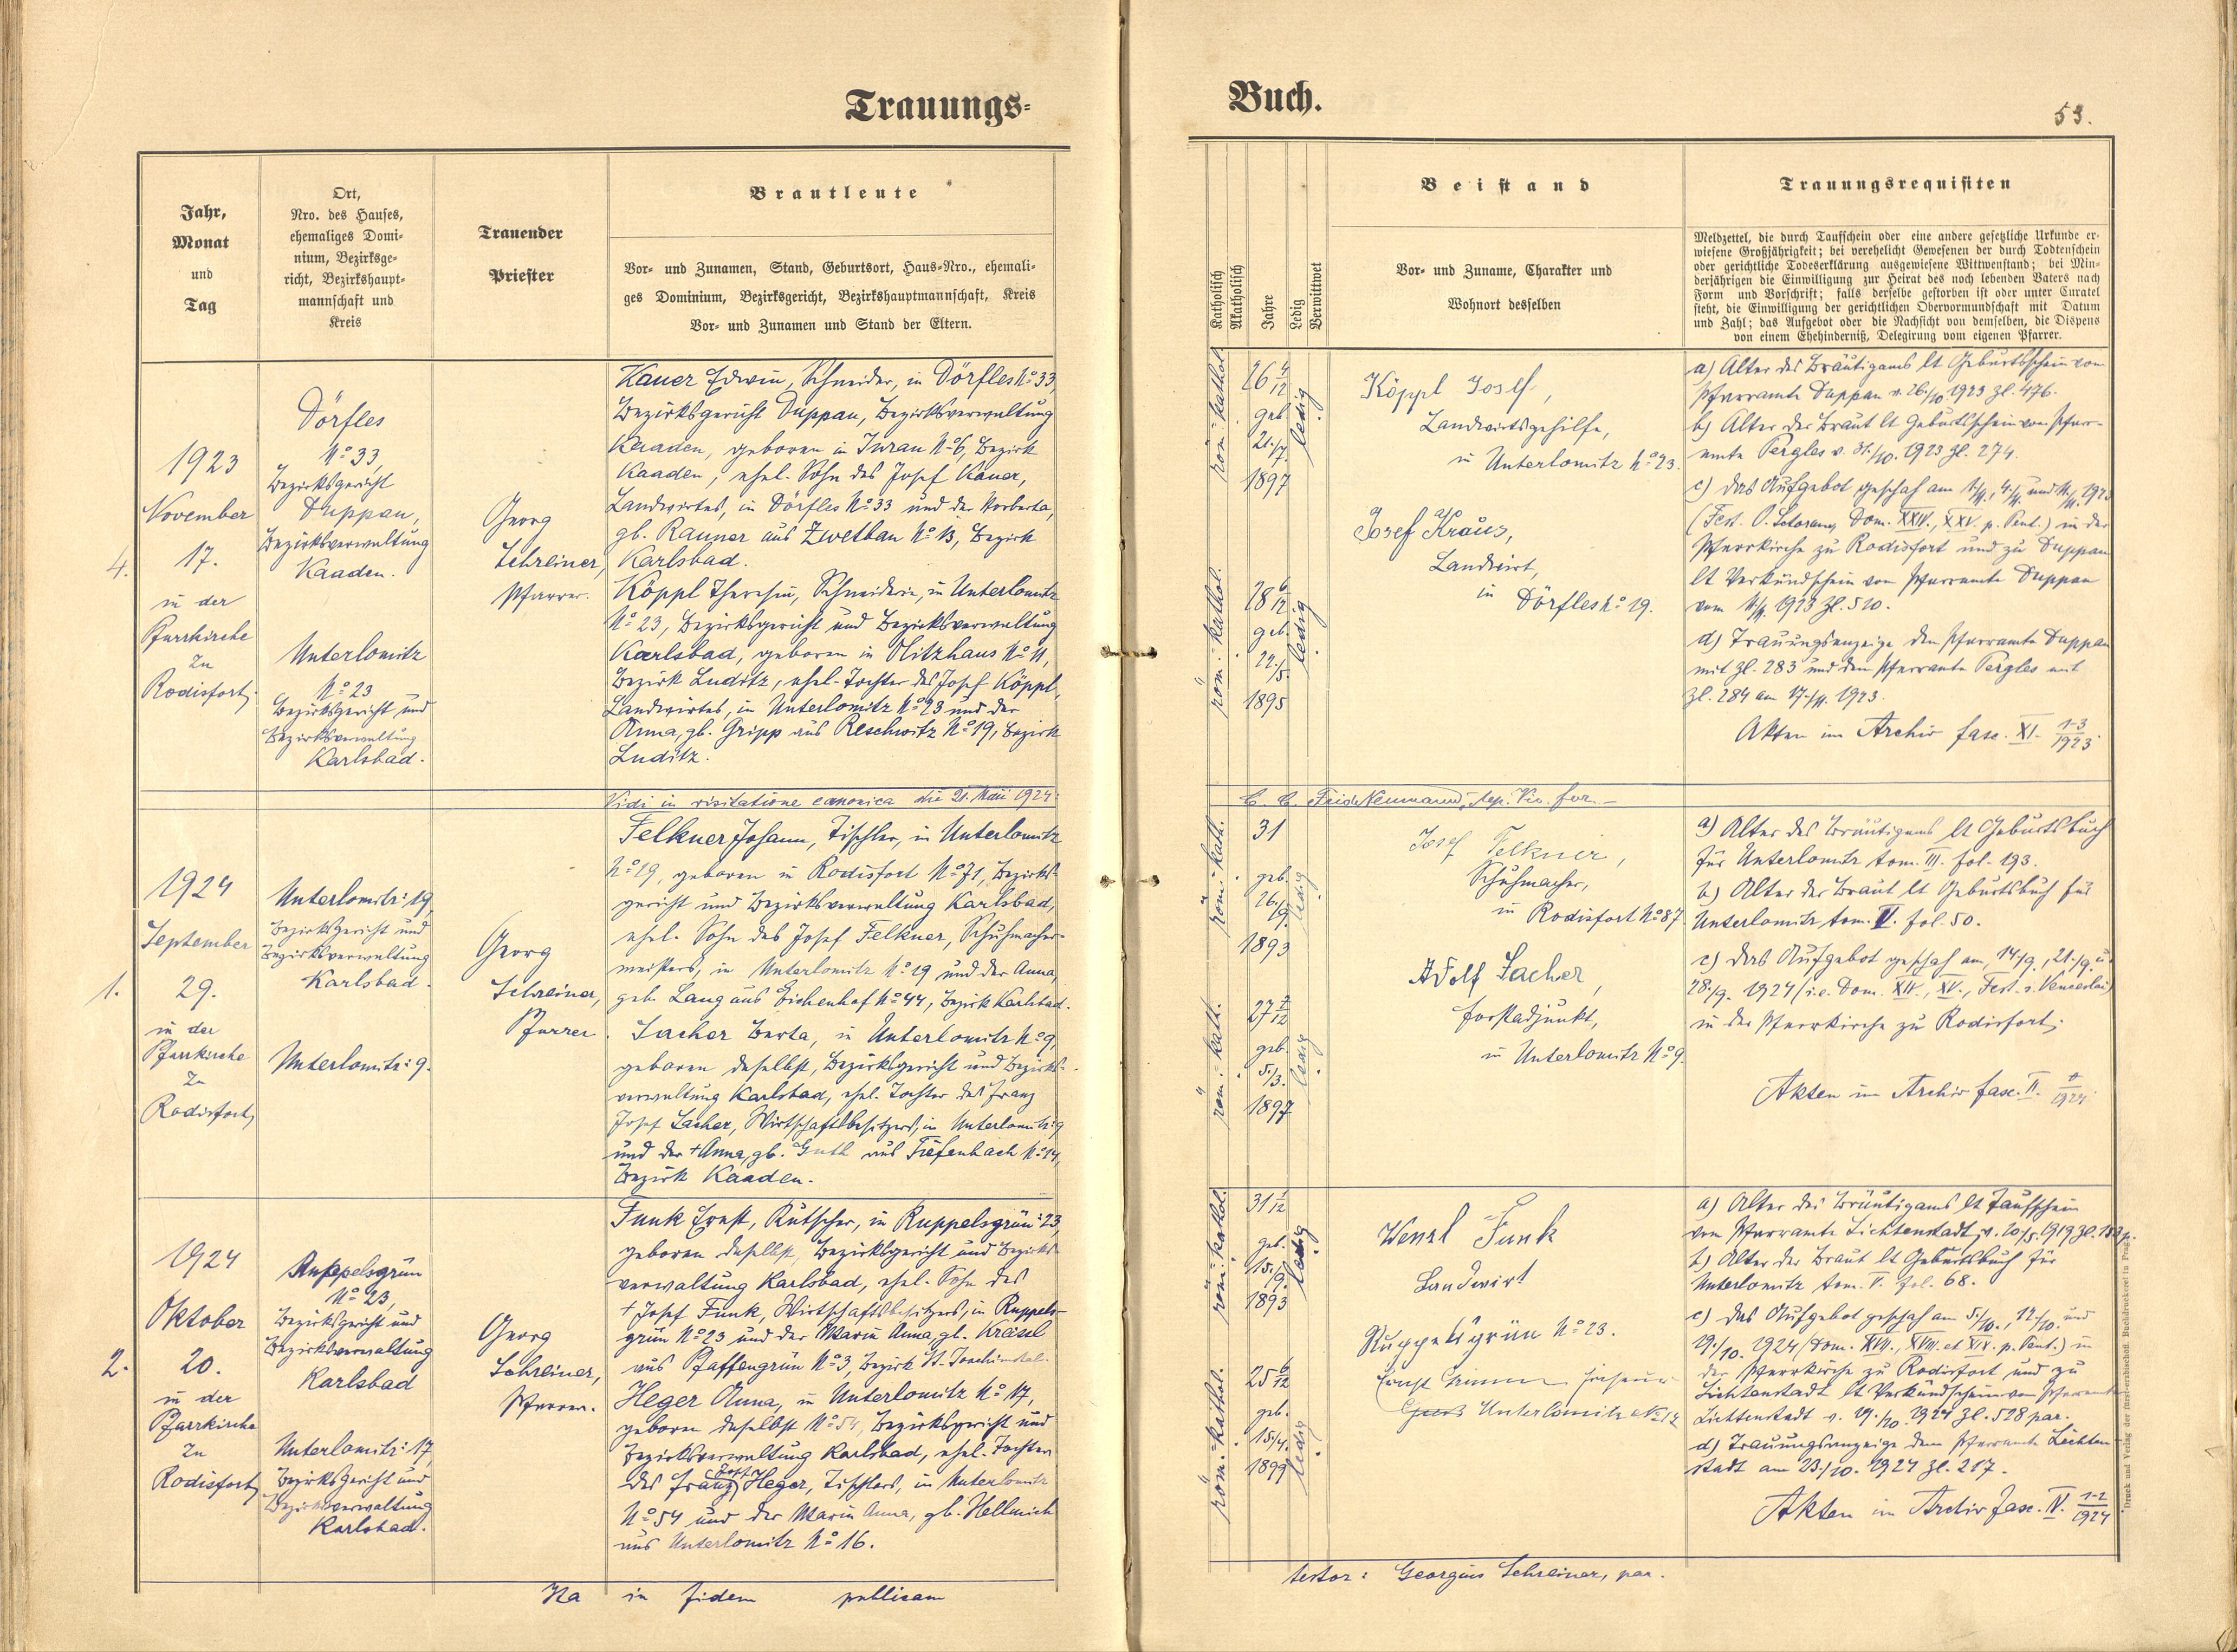 Trauungs-
Jahr,
Monat
und
Tag
Ort,
Nro. des Hauses,
ehemaliges Domi-
nium, Bezirksge-
richt, Bezirkshaupt-
mannschaft und
Kreis
Trauender
Priester
Brautleute
Vor- und Zunamen, Stand, Geburtsort, Haus-Nro., ehemali-
ges Dominium, Bezirksgericht, Bezirkshauptmannschaft, Kreis
Vor- und Zunamen und Stand der Eltern.
4.
1923
November
17.
in der
Pfarrkirche
zu
Rodisfort.
Dörfles
No 33,
Bezirksgericht
Duppau,
Bezirksverwaltung
Kaaden.
Unterlomitz
No 23
Bezirksgericht und
Bezirksverwaltung
Karlsbad.
Georg
Schreiner,
Pfarrer.
Kauer Edwin, Schneider, in Dörfles No 33,
Bezirksgericht Duppau, Bezirksverwaltung
Kaaden, geboren in Turau No 6, Bezirk
Kaaden, ehel. Sohn des Josef Kauer,
Landwirtes, in Dörfles No 33 und der Norberta,
gb. Rauner aus Zwetbau No 13, Bezirk
Karlsbad.
Köppl Theresia, Schneiderin, in Unterlomitz
No 23, Bezirksgericht und Bezirksverwaltung
Karlsbad, geboren in Olitzhaus No 11,
Bezirk Luditz, ehel. Tochter des Josef Köppl,
Landwirtes, in Unterlomitz No 23 und der
Anna, gb. Gripp aus Reschwitz No 19, Bezirk
Luditz.
Vidi in visitatione canonica die 21. Maii 1924:
1.
1924
September
29.
in der
Pfarrkirche
zu
Rodisfort,
Unterlomitz: 19,
Bezirksgericht und
Bezirksverwaltung
Karlsbad.
Unterlomitz: 9.
Georg
Schreiner,
Pfarrer.
Felkner Johann, Tischler, in Unterlomitz
No 19, geboren in Rodisfort No 71, Bezirks-
gericht und Bezirksverwaltung Karlsbad,
ehel. Sohn des Josef Felkner, Schuhmacher-
meisters, in Unterlomitz No 19 und der Anna,
geb. Lang aus Eichenhof No 44, Bezirk Karlsbad.
Lacher Berta, in Unterlomitz No 9,
geboren daselbst, Bezirksgericht und Bezirks-
verwaltung Karlsbad, ehel. Tochter des Franz
Josef Lacher, Wirtschaftsbesitzers, in Unterlomitz: 9
und der + Anna, gb. Guth aus Tiefenbach No 14,
Bezirk Kaaden.
2.
1924
Oktober
20.
in der
Pfarrkirche
zu
Rodisfort,
Ruppelsgrün
No 23,
Bezirksgericht und
Bezirksverwaltung
Karlsbad
Unterlomitz: 17,
Bezirksgericht und
Bezirksverwaltung
Karlsbad.
Georg
Schreiner,
Pfarrer.
Funk Ernst, Kutscher, in Ruppelsgrün: 23,
geboren daselbst, Bezirksgericht und Bezirks-
verwaltung Karlsbad, ehel. Sohn des
+ Josef Funk, Wirtschaftsbesitzers, in Ruppels-
grün No 23 und der Maria Anna, gb. Kreisel
aus Pfaffengrün No 3, Bezirk St. Joachimstal.
Heger Anna, in Unterlomitz No 17,
geboren daselbst No 54, Bezirksgericht und
Bezirksverwaltung Karlsbad, ehel. Tochter
des Franz Josef Heger, Tischlers, in Unterlomitz
No 54 und der Maria Anna, gb. Hellmich
aus Unterlomitz No 16.
Ita in fidem publicam
Buch.
53.
Katholisch
Akatholisch
Jahre
Ledig
Verwittwet
Beistand
Vor- und Zuname, Charakter und
Wohnort desselben
Trauungsrequisiten
Meldzettel, die durch Taufschein oder eine andere gesetzliche Urkunde er-
wiesene Großjährigkeit; bei verehelicht Gewesenen der durch Todtenschein
oder gerichtliche Todeserklärung ausgewiesene Wittwenstand; bei Min-
derjährigen die Einwilligung zur Heirat des noch lebenden Vaters nach
Form und Vorschrift; falls derselbe gestorben ist oder unter Curatel
steht, die Einwilligung der gerichtlichen Obervormundschaft mit Datum
und Zahl; das Aufgebot oder die Nachsicht von demselben, die Dispens
von einem Ehehinderniß, Delegirung vom eigenen Pfarrer.
röm.-kathol.
26 4/12
geb.
21./7.
1897
ledig
röm.-kathol.
28 6/12
geb.
22./5.
1895
ledig
Köppl Josef,
Landwirtsgehilfe,
in Unterlomitz No 23.
Josef Kraus,
Landwirt,
in Dörfles No 19.
a) Alter des Bräutigams lt Geburtsschein vom
Pfarramte Duppau v. 26./10. 1923 Zl. 476.
b) Alter der Braut lt Geburtsschein vom Pfarr-
amte Pergles v. 31./10. 1923 Zl. 274.
c) Das Aufgebot geschah am 1./11., 4./11. und 11./11. 1923
(Fest. O. Sctorum, Dom. XXIV., XXV. p. Pent.) in der
Pfarrkirche zu Rodisfort und zu Duppau
lt Verkündschein vom Pfarramte Duppau
vom 11./11. 1923 Zl. 510.
d) Trauungsanzeige dem Pfarramte Duppau
mit Zl. 283 und dem Pfarramte Pergles mit
Zl. 284 am 17./11. 1923.
Akten im Archiv fasc. XI. 1-3/1923
Neumann,
röm.-kath.
31
geb.
26./9.
1893
ledig
röm.-kath.
27 7/12
geb.
5./3.
1897
ledig
Josef Felkner,
Schuhmacher,
in Rodisfort No 87.
Adolf Lacher,
Forstadjunkt,
in Unterlomitz No 9.
a) Alter des Bräutigams lt Geburtsbuch
für Unterlomitz tom. III. fol. 193.
b) Alter der Braut lt Geburtsbuch für
Unterlomitz tom. V. fol. 50.
c) Das Aufgebot geschah am, 14./9., 21./9. u.
28./9. 1924 (i.e. Dom. XIV., XV., Fest. s. Venceslai)
in der Pfarrkirche zu Rodisfort.
Akten im Archiv fasc. II. 1924
röm.-kathol.
31 1/12
geb.
15./9.
1893
ledig
röm.-kathol.
25 6/12
geb.
15./4.
1899
ledig
Wenzl Funk
Landwirt
Ruppelsgrün No 23.
Ernst
Unterlomitz No 17
a) Alter des Bräutigams lt Taufschein
vom Pfarramte Lichtenstadt, v. 20./5. 1919 Zl.
b) Alter der Braut lt Geburtsbuch für
Unterlomitz tom. V. fol. 68.
c) Das Aufgebot geschah am 5./10., 12./10. und
19./10. 1924 (Dom. XVII., XVIII. et XIX. p. Pent.) in
der Pfarrkirche zu Rodisfort und zu
Lichtenstadt lt Verkündschein vom Pfarramte
Lichtenstadt v. 19./10. 1924 Zl. 528 par.
d) Trauungsanzeige dem Pfarramte Lichten-
stadt am 23./10. 1924 Zl. 217.
Akten im Archiv fasc. IV. 1-2/1924
testor: Georgius Schreiner, par.